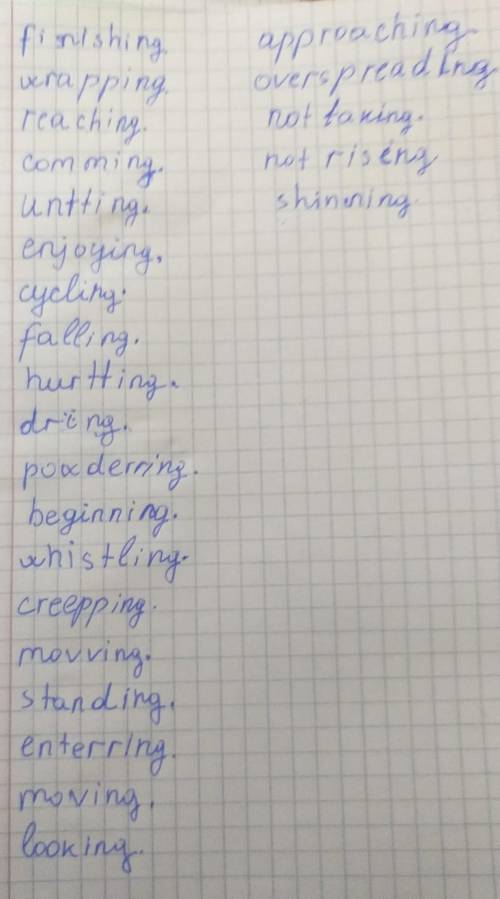 finishing.
wrapping.
reaching.
comming.
untting.
enjoying.
cycling.
falling.
hurtting.
dring.
powderring.
beginning.
whistling.
creepping.
movving.
standing.
enterring.
moving.
looking.
approaching.
overspreading
not taking.
not rising
shinning